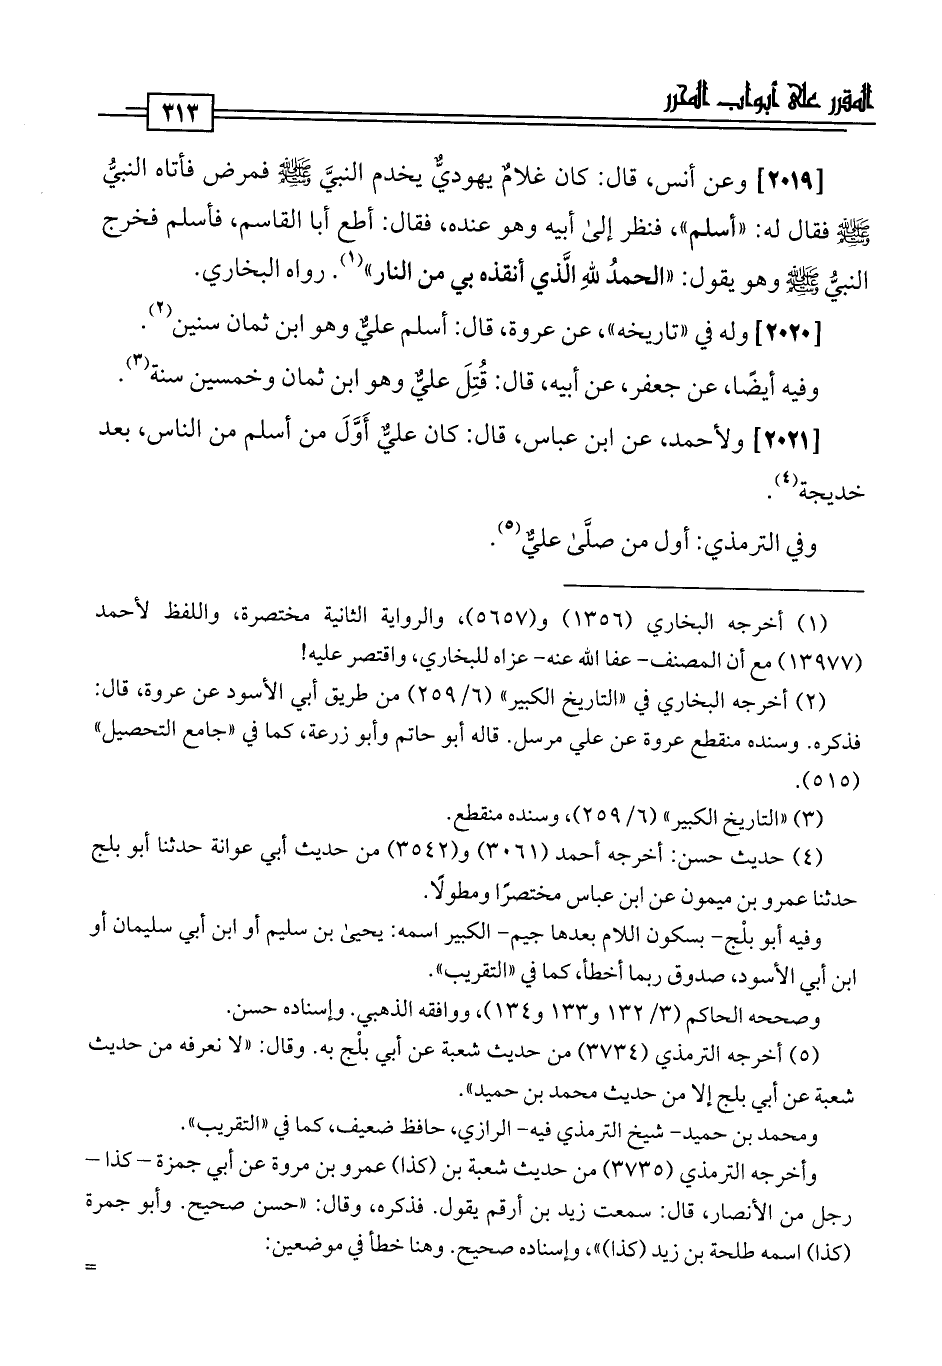 المقرر على أبواب المحرر
٣١٣
[٢٠١٩] وعن أنس، قال: كان غلامٌ يهوديٌّ يخدم النبيَّ ﷺ فمرض فأتاه النبيُّ
ﷺ فقال له: «أسلم»، فنظر إلىٰ أبيه وهو عنده، فقال: أطع أبا القاسم، فأسلم فخرج
النبيُّ ﷺ وهو يقول: «الحمدُ للهِ الَّذي أنقذه بي من النار»(١). رواه البخاري.
[٢٠٢٠] وله في «تاريخه»، عن عروة، قال: أسلم عليٌّ وهو ابن ثمان سنين(٢).
وفيه أيضًا، عن جعفر، عن أبيه، قال: قُتِلَ عليٌّ وهو ابن ثمان وخمسين سنة(٣).
[٢٠٢١] ولأحمد، عن ابن عباس، قال: كان عليٌّ أَوَّلَ من أسلم من الناس، بعد
خديجة(٤).
وفي الترمذي: أول من صلَّىٰ عليٌّ(٥).
(١) أخرجه البخاري (١٣٥٦) و(٥٦٥٧)، والرواية الثانية مختصرة، واللفظ لأحمد
(١٣٩٧٧) مع أن المصنف- عفا الله عنه- عزاه للبخاري، واقتصر عليه!
(٢) أخرجه البخاري في «التاريخ الكبير» (٦/ ٢٥٩) من طريق أبي الأسود عن عروة، قال:
فذكره. وسنده منقطع عروة عن علي مرسل. قاله أبو حاتم وأبو زرعة، كما في «جامع التحصيل»
(٥١٥).
(٣) «التاريخ الكبير» (٦/ ٢٥٩)، وسنده منقطع.
(٤) حديث حسن: أخرجه أحمد (٣٠٦١) و(٣٥٤٢) من حديث أبي عوانة حدثنا أبو بلج
حدثنا عمرو بن ميمون عن ابن عباس مختصرًا ومطولًا.
وفيه أبو بلْج- بسكون اللام بعدها جيم- الكبير اسمه: يحيىٰ بن سليم أو ابن أبي سليمان أو
ابن أبي الأسود، صدوق ربما أخطأ، كما في «التقريب».
وصححه الحاكم (٣/ ١٣٢ و١٣٣ و١٣٤)، ووافقه الذهبي. وإسناده حسن.
(٥) أخرجه الترمذي (٣٧٣٤) من حديث شعبة عن أبي بلْج به. وقال: «لا نعرفه من حديث
شعبة عن أبي بلج إلا من حديث محمد بن حميد».
ومحمد بن حميد- شيخ الترمذي فيه- الرازي، حافظ ضعيف، كما في «التقريب».
وأخرجه الترمذي (٣٧٣٥) من حديث شعبة بن (كذا) عمرو بن مروة عن أبي جمزة - كذا -
رجل من الأنصار، قال: سمعت زيد بن أرقم يقول. فذكره، وقال: «حسن صحيح. وأبو جمرة
(كذا) اسمه طلحة بن زيد (كذا)»، وإسناده صحيح. وهنا خطأ في موضعين:
=